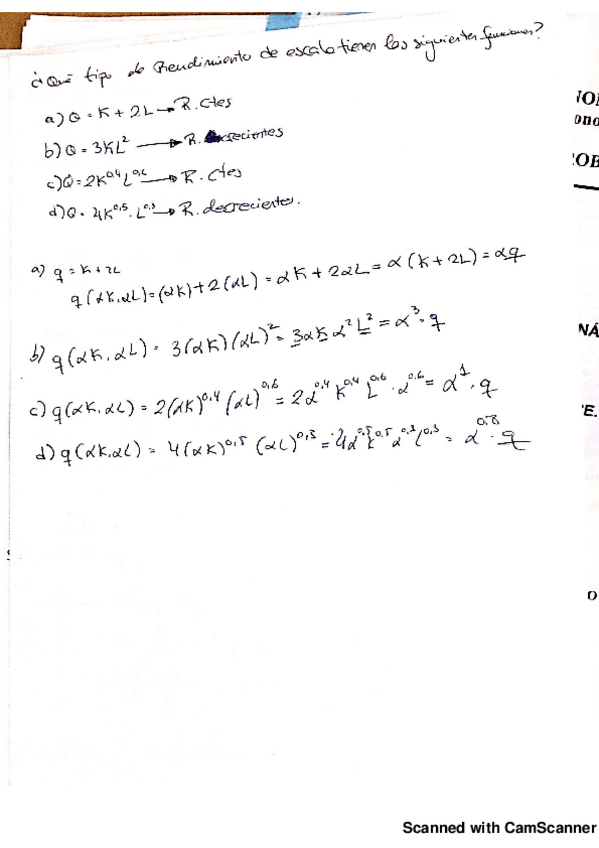 ¿Qué tipo de Rendimiento de escala tienen las siguientes funciones?
a) Q = K + 2L → R. Ctes
b) Q = 3KL² → R. crecientes
c) Q = 2K^0,4 L^0,6 → R. Ctes
d) Q = 4K^0,5 · L^0,3 → R. decrecientes.
a) q = K + 2L
q(αK, αL) = (αK) + 2(αL) = αK + 2αL = α(K + 2L) = αq
b) q(αK, αL) = 3(αK)(αL)² = 3αK α²L² = α³ · q
c) q(αK, αL) = 2(αK)^0,4 (αL)^0,6 = 2α^0,4 K^0,4 L^0,6 · α^0,6 = α^1 · q
d) q(αK, αL) = 4(αK)^0,5 (αL)^0,3 = 4α^0,5 K^0,5 α^0,3 L^0,3 = α^0,8 · q
NÁ
E.
O
Scanned with CamScanner